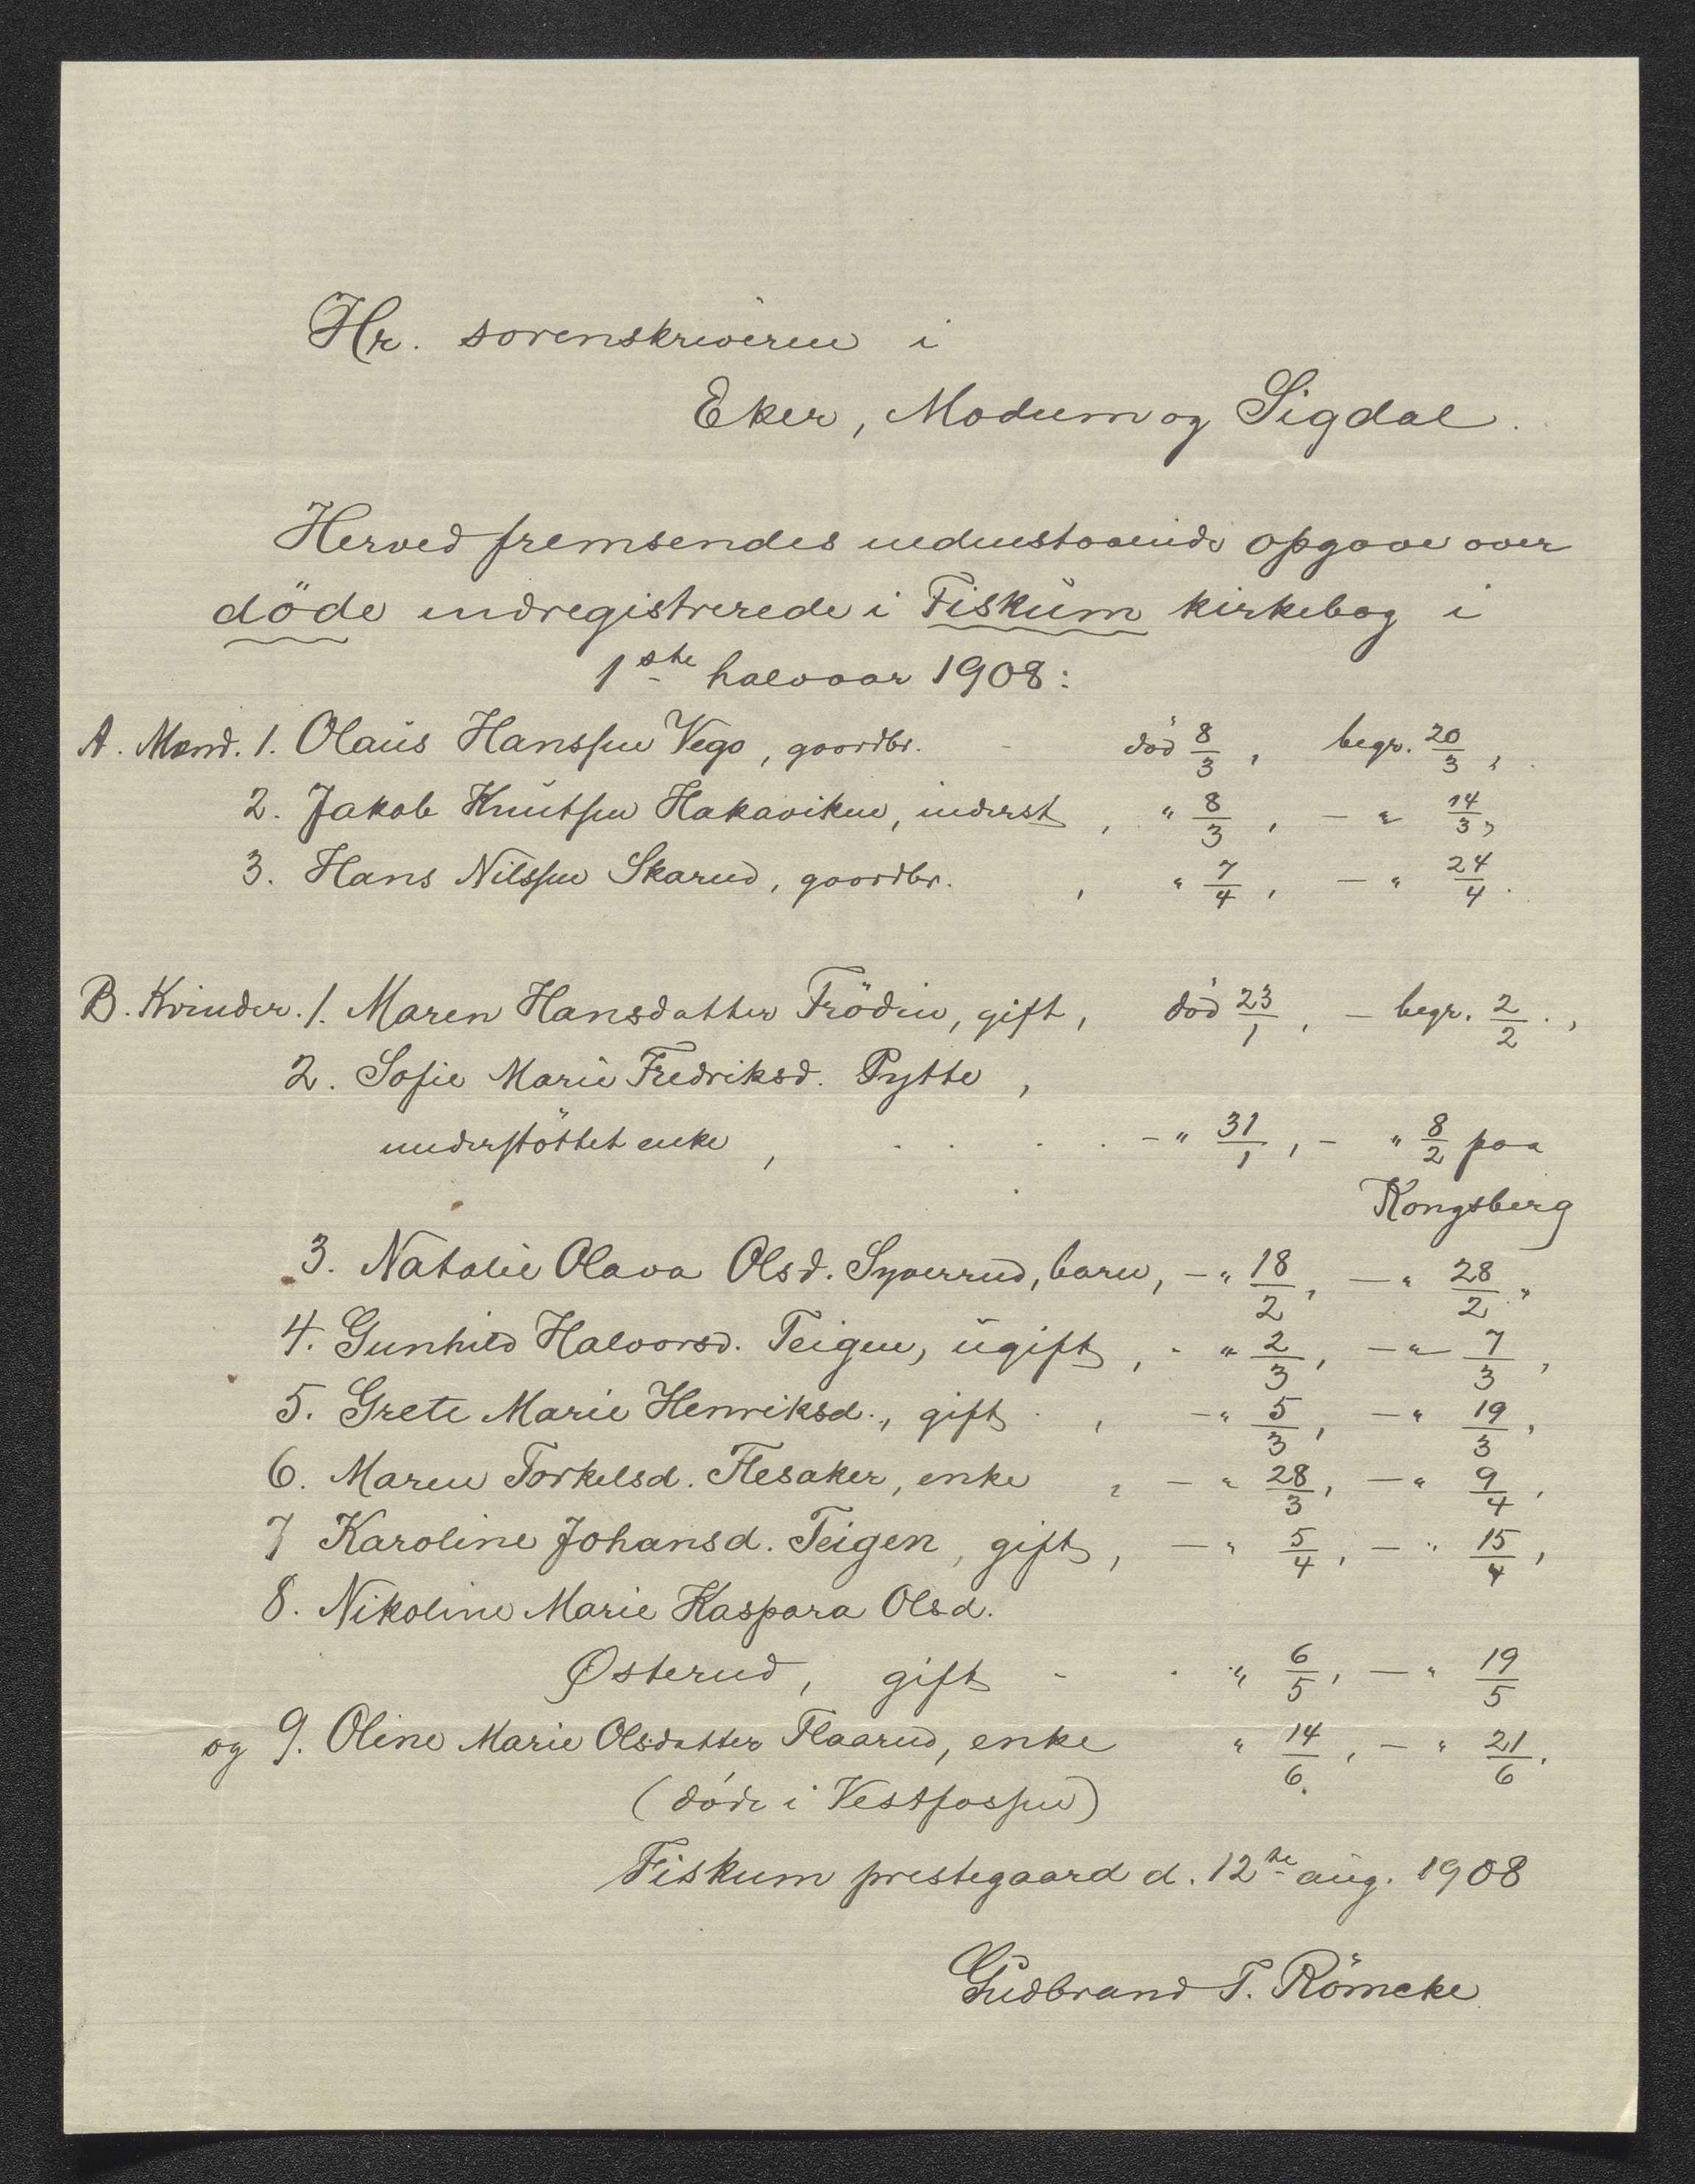 Hr. sorenskriveren i
Eker, Modum og Sigdal.
Herved fremsendes nedenstaaende opgave over
döde indregistrerede i Fiskum kirkebog i
1ste halvaar 1908:
A. Mænd. 1. Olaus Hanssen Vego, gaardbr. - död 8/3, begr. 20/3,
2. Jakob Knutsen Hakaviken, inderst, " 8/3, — " 14/3,
3. Hans Nilssen Skarud, gaardbr. , " 7/4, — " 24/4.
B. Kvinder. 1. Maren Hansdatter Frödin, gift, död 23/1, — begr. 2/2.,
2. Sofie Marie Fredriksd. Pytte,
understöttet enke, . . . . - " 31/1, - " 8/2 paa
Kongsberg
3. Natalie Olava Olsd. Syverrud, barn, - " 18/2, — " 28/2 "
4. Gunhild Halvorsd. Teigen, ugift, - " 2/3, — " — 7/3,
5. Grete Marie Henriksd., gift , - " 5/3, — " 19/3,
6. Maren Torkelsd. Flesaker, enke , - " 28/3, — " 9/4,
7 Karoline Johansd. Teigen, gift, — " 5/4, — " 15/4,
8. Nikoline Marie Kaspara Olsd.
Østerud, gift - . " 6/5, — " 19/5
og 9. Oline Marie Olsdatter Flaarud, enke " 14/6, — " 21/6.
(döde i Vestfossen)
Fiskum prestegaard d. 12te aug. 1908
Gudbrand T. Römcke